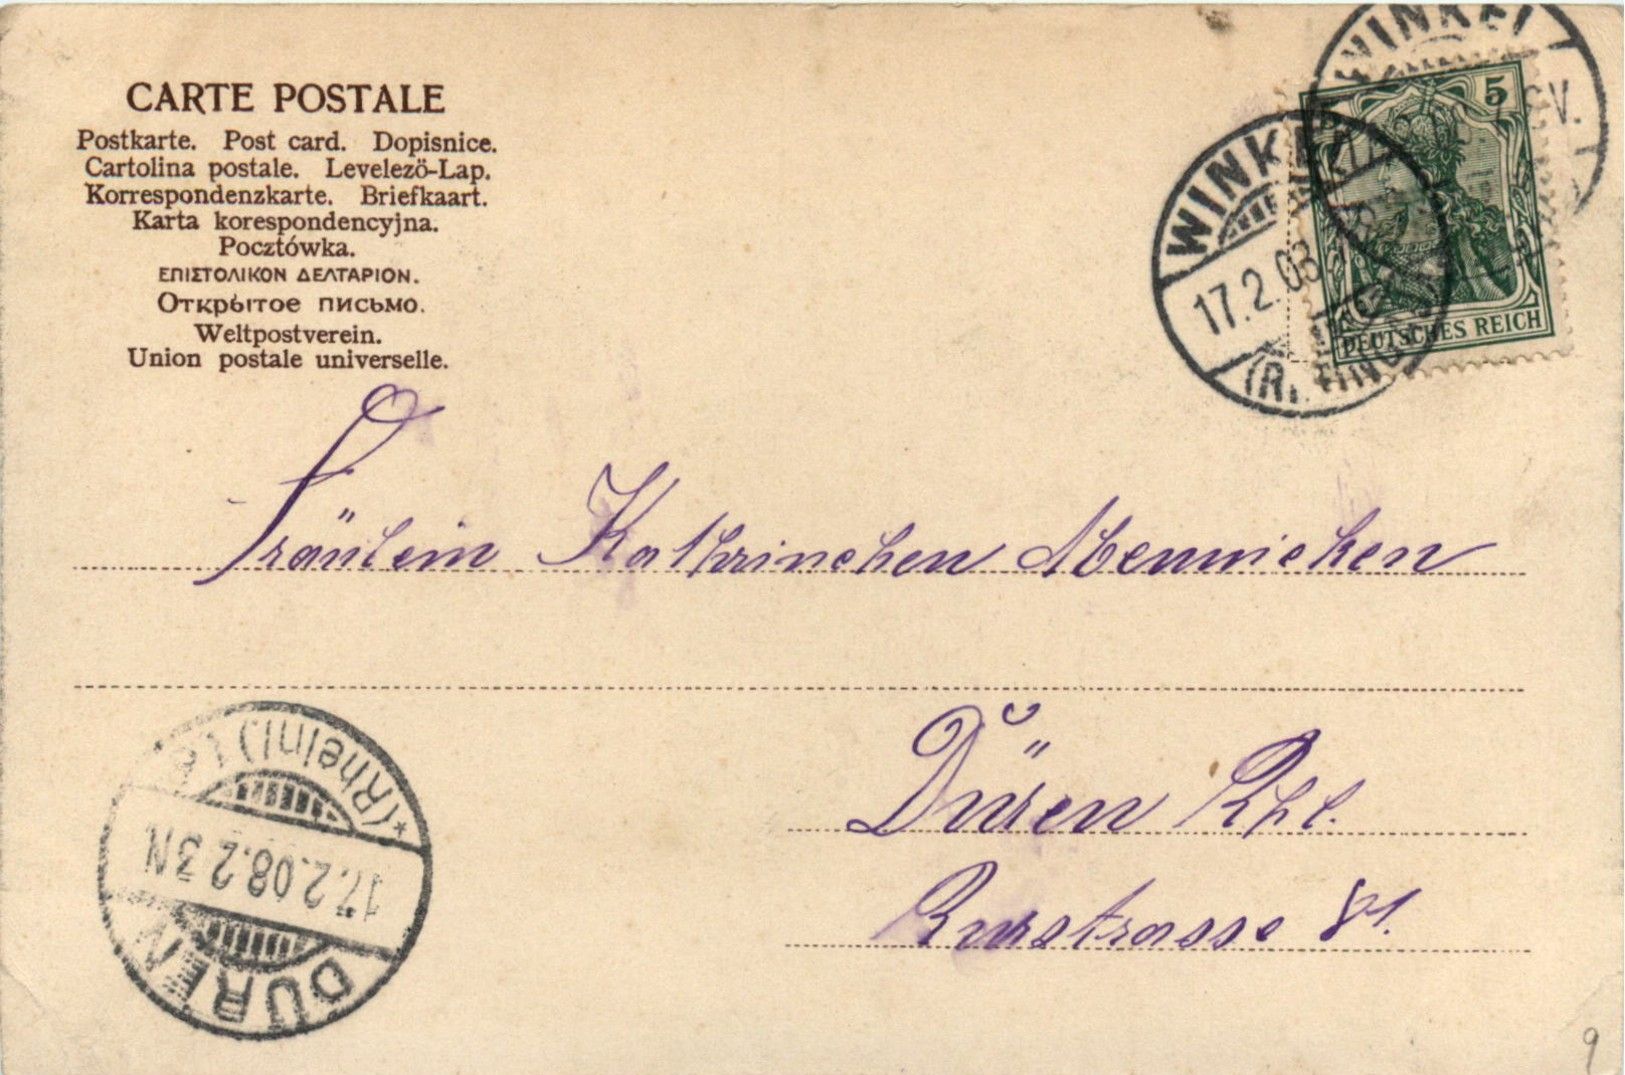 CARTE POSTALE
Postkarte. Post card. Dopisnice.
Cartolina postale. Levelezö-Lap.
Korrespondenzkarte. Briefkaart.
Karta korespondencyjna.
Pocztówka.
ΕΠΙΣΤΟΛΙΚΟΝ ΔΕΛΤΑΡΙΟΝ.
Открытое письмо.
Weltpostverein.
Union postale universelle.
WINKEL
V.
5
DEUTSCHES REICH
WINKEL
17.2.08
(RHEINGAU)
Fräulein Kathrinchen
Düren Rhl.
Rurstrasse 81.
DÜREN
17.2.08.2-3N
*(Rheinl.)
9